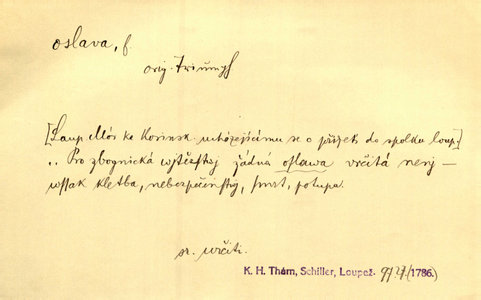 oslava, f.
orig. Triumpf
[Loup. Mór ke Kosinsk. ucházejícímu se o přijetí do spolku loup.]
.. Pro zbognická wjtězstwj žádná oslawa určitá nenj —
wssak kletba, nebezpečenstwj, smrt, potupa.
sr. určiti.
K. H. Thám, Schiller, Loupež. (1786.)